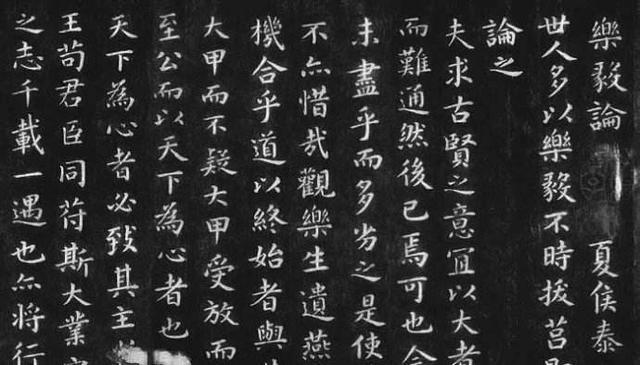 樂毅論 夏侯泰
世人多以樂毅不時拔莒
論之
夫求古賢之意宜以大者
而難通然後已焉可也今
未盡乎而多劣之是使
不亦惜哉觀樂生遺燕
機合乎道以終始者與
大甲而不疑大甲受放而
至公而以天下為心者也
天下為心者必致其主
王苟君臣同苻斯大業
之志千載一遇也亦将行